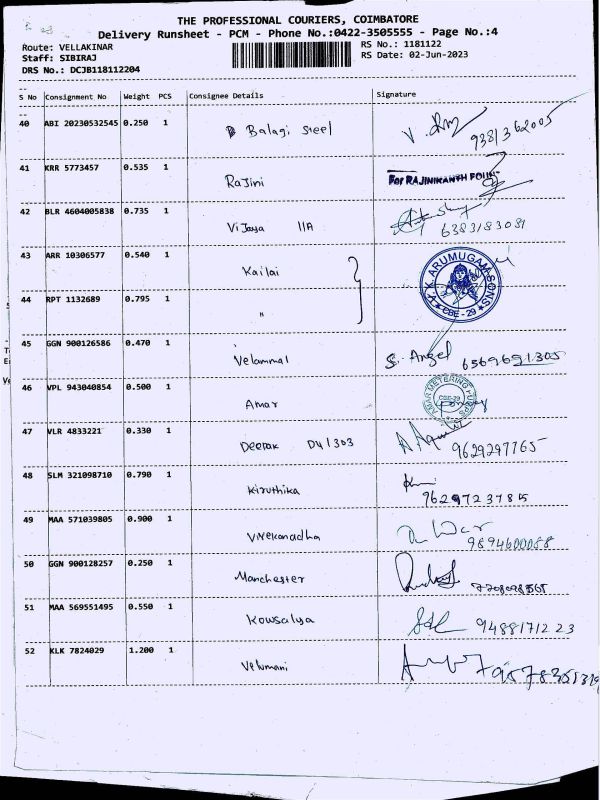 THE PROFESSIONAL COURIERS, COIMBATORE
Delivery Runsheet - PCM - Phone No.:0422-3505555 - Page No.:4
Route: VELLAKINAR
RS No.: 1181122
Staff: SIBIRAJ
RS Date: 02-Jun-2023
DRS No.: DCJB118112204
S No Consignment No Weight PCS Consignee Details Signature
40 ABI 20230532545 0.250 1 Balagi steel 9381362005
41 KRR 5773457 0.535 1 Rajini For RAJINIKANTH FOUN
42 BLR 4604005838 0.735 1 Vijaya 11A 6383183081
43 ARR 10306577 0.540 1 Kailai A.K. ARUMUGAM SONS CBE - 29
44 RPT 1132689 0.795 1 "
45 GGN 900126586 0.470 1 Velammal S. Angel 6569691305
46 VPL 943040854 0.500 1 Amar AMAR METERING PUMPS CBE-29
47 VLR 4833221 0.330 1 Deepak D4/303 9629297765
48 SLM 321098710 0.790 1 Kiruthika 9629723785
49 MAA 571039805 0.900 1 Vivekanadha 9894600088
50 GGN 900128257 0.250 1 Manchester
51 MAA 569551495 0.550 1 Kowsalya 9488171223
52 KLK 7824029 1.200 1 Velumani 9578351319